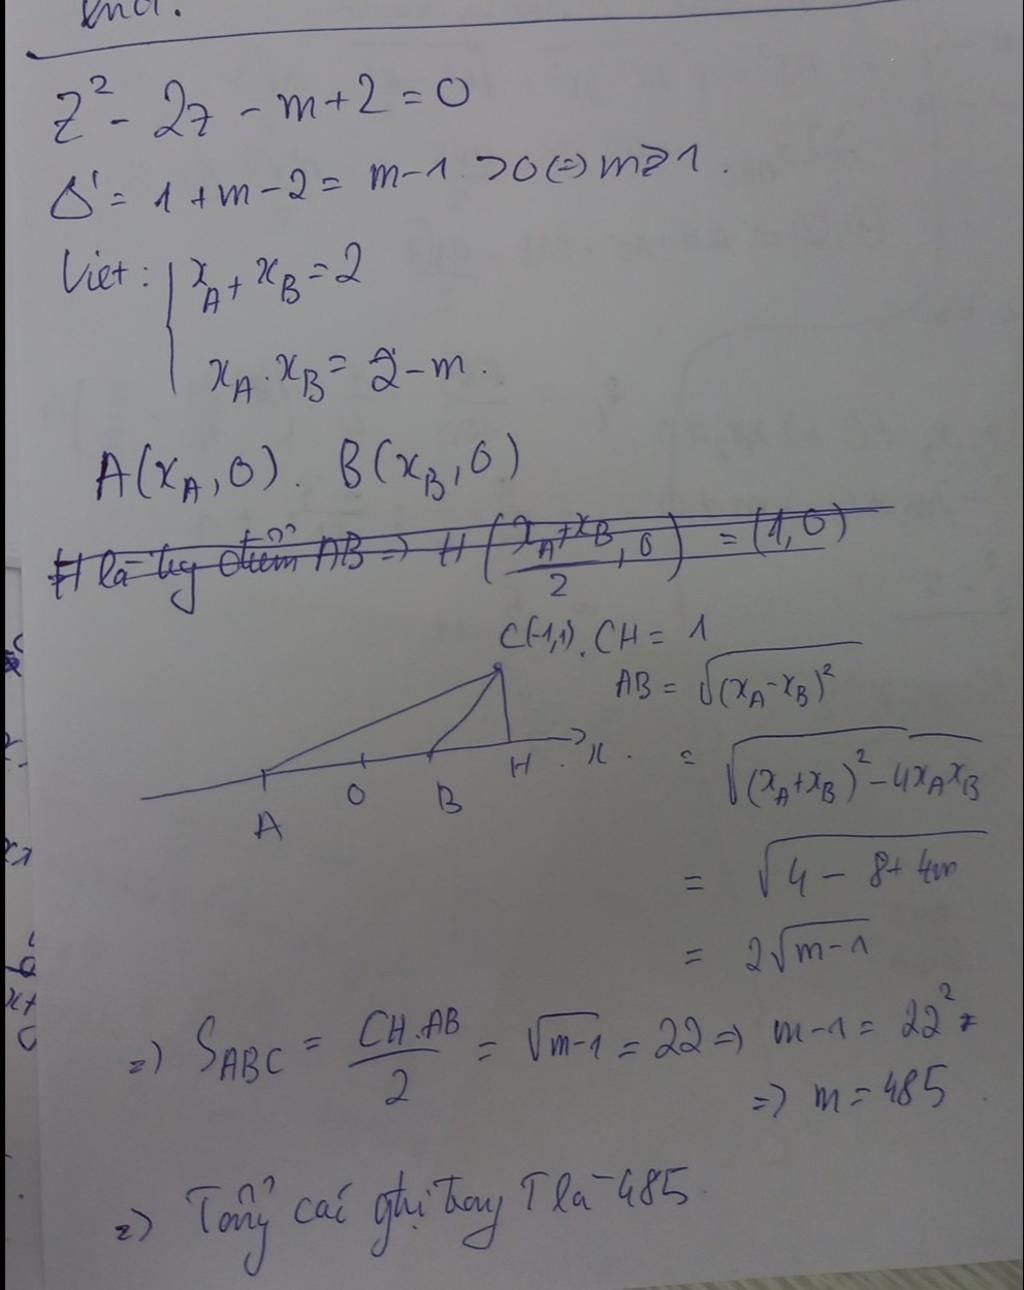 z² - 2z - m + 2 = 0
Δ' = 1 + m - 2 = m - 1 > 0 (=) m ≥ 1.
Viet: { x_A + x_B = 2
x_A . x_B = 2 - m.
A(x_A, 0). B(x_B, 0)
H là tg điểm AB => H ((x_A + x_B)/2, 0) = (1, 0)
C(-1,1). CH = 1
AB = √(x_A - x_B)²
A O B H x.
= √(x_A + x_B)² - 4x_A x_B
= √4 - 8 + 4m
= 2√m - 1
=> S_ABC = CH.AB/2 = √m-1 = 22 => m - 1 = 22²
=> m = 485.
=> Tổng các gtrị trong T là 485.